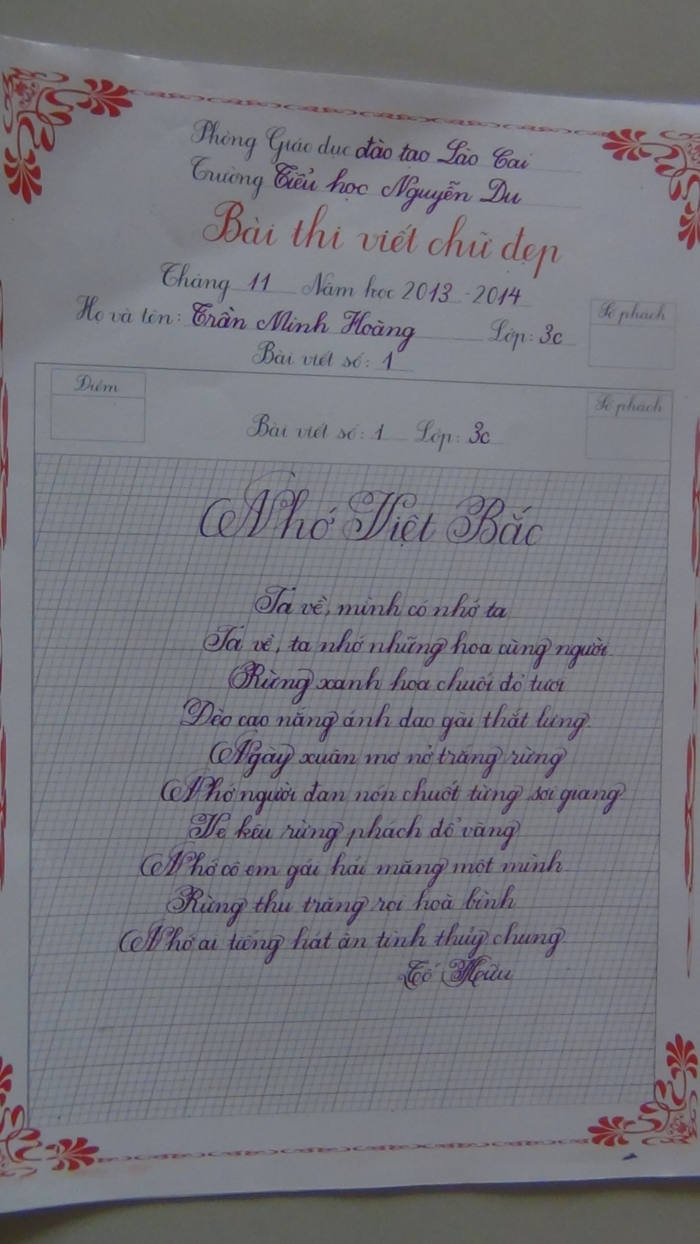 Phòng Giáo dục đào tạo Lào Cai
Trường Tiểu học Nguyễn Du
Bài thi viết chữ đẹp
Tháng 11 Năm học 2013 - 2014
Họ và tên: Trần Minh Hoàng Lớp: 3c
Số phách
Bài viết số: 1
Điểm
Số phách
Bài viết số: 1 Lớp: 3c
Nhớ Việt Bắc
Ta về, mình có nhớ ta
Ta về, ta nhớ những hoa cùng người
Rừng xanh hoa chuối đỏ tươi
Đèo cao nắng ánh dao gài thắt lưng.
Ngày xuân mơ nở trắng rừng
Nhớ người đan nón chuốt từng sợi giang
Ve kêu rừng phách đổ vàng
Nhớ cô em gái hái măng một mình
Rừng thu trăng rọi hoà bình
Nhớ ai tiếng hát ân tình thuỷ chung
Tố Hữu